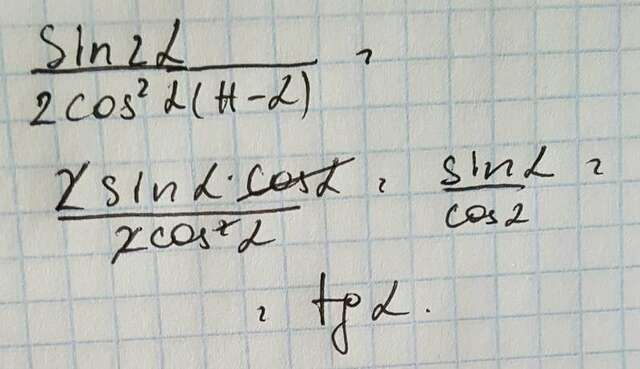 sin 2α / 2cos² α(π-α) =
2 sin α · cos α / 2cos² α = sin α / cos α =
= tg α.